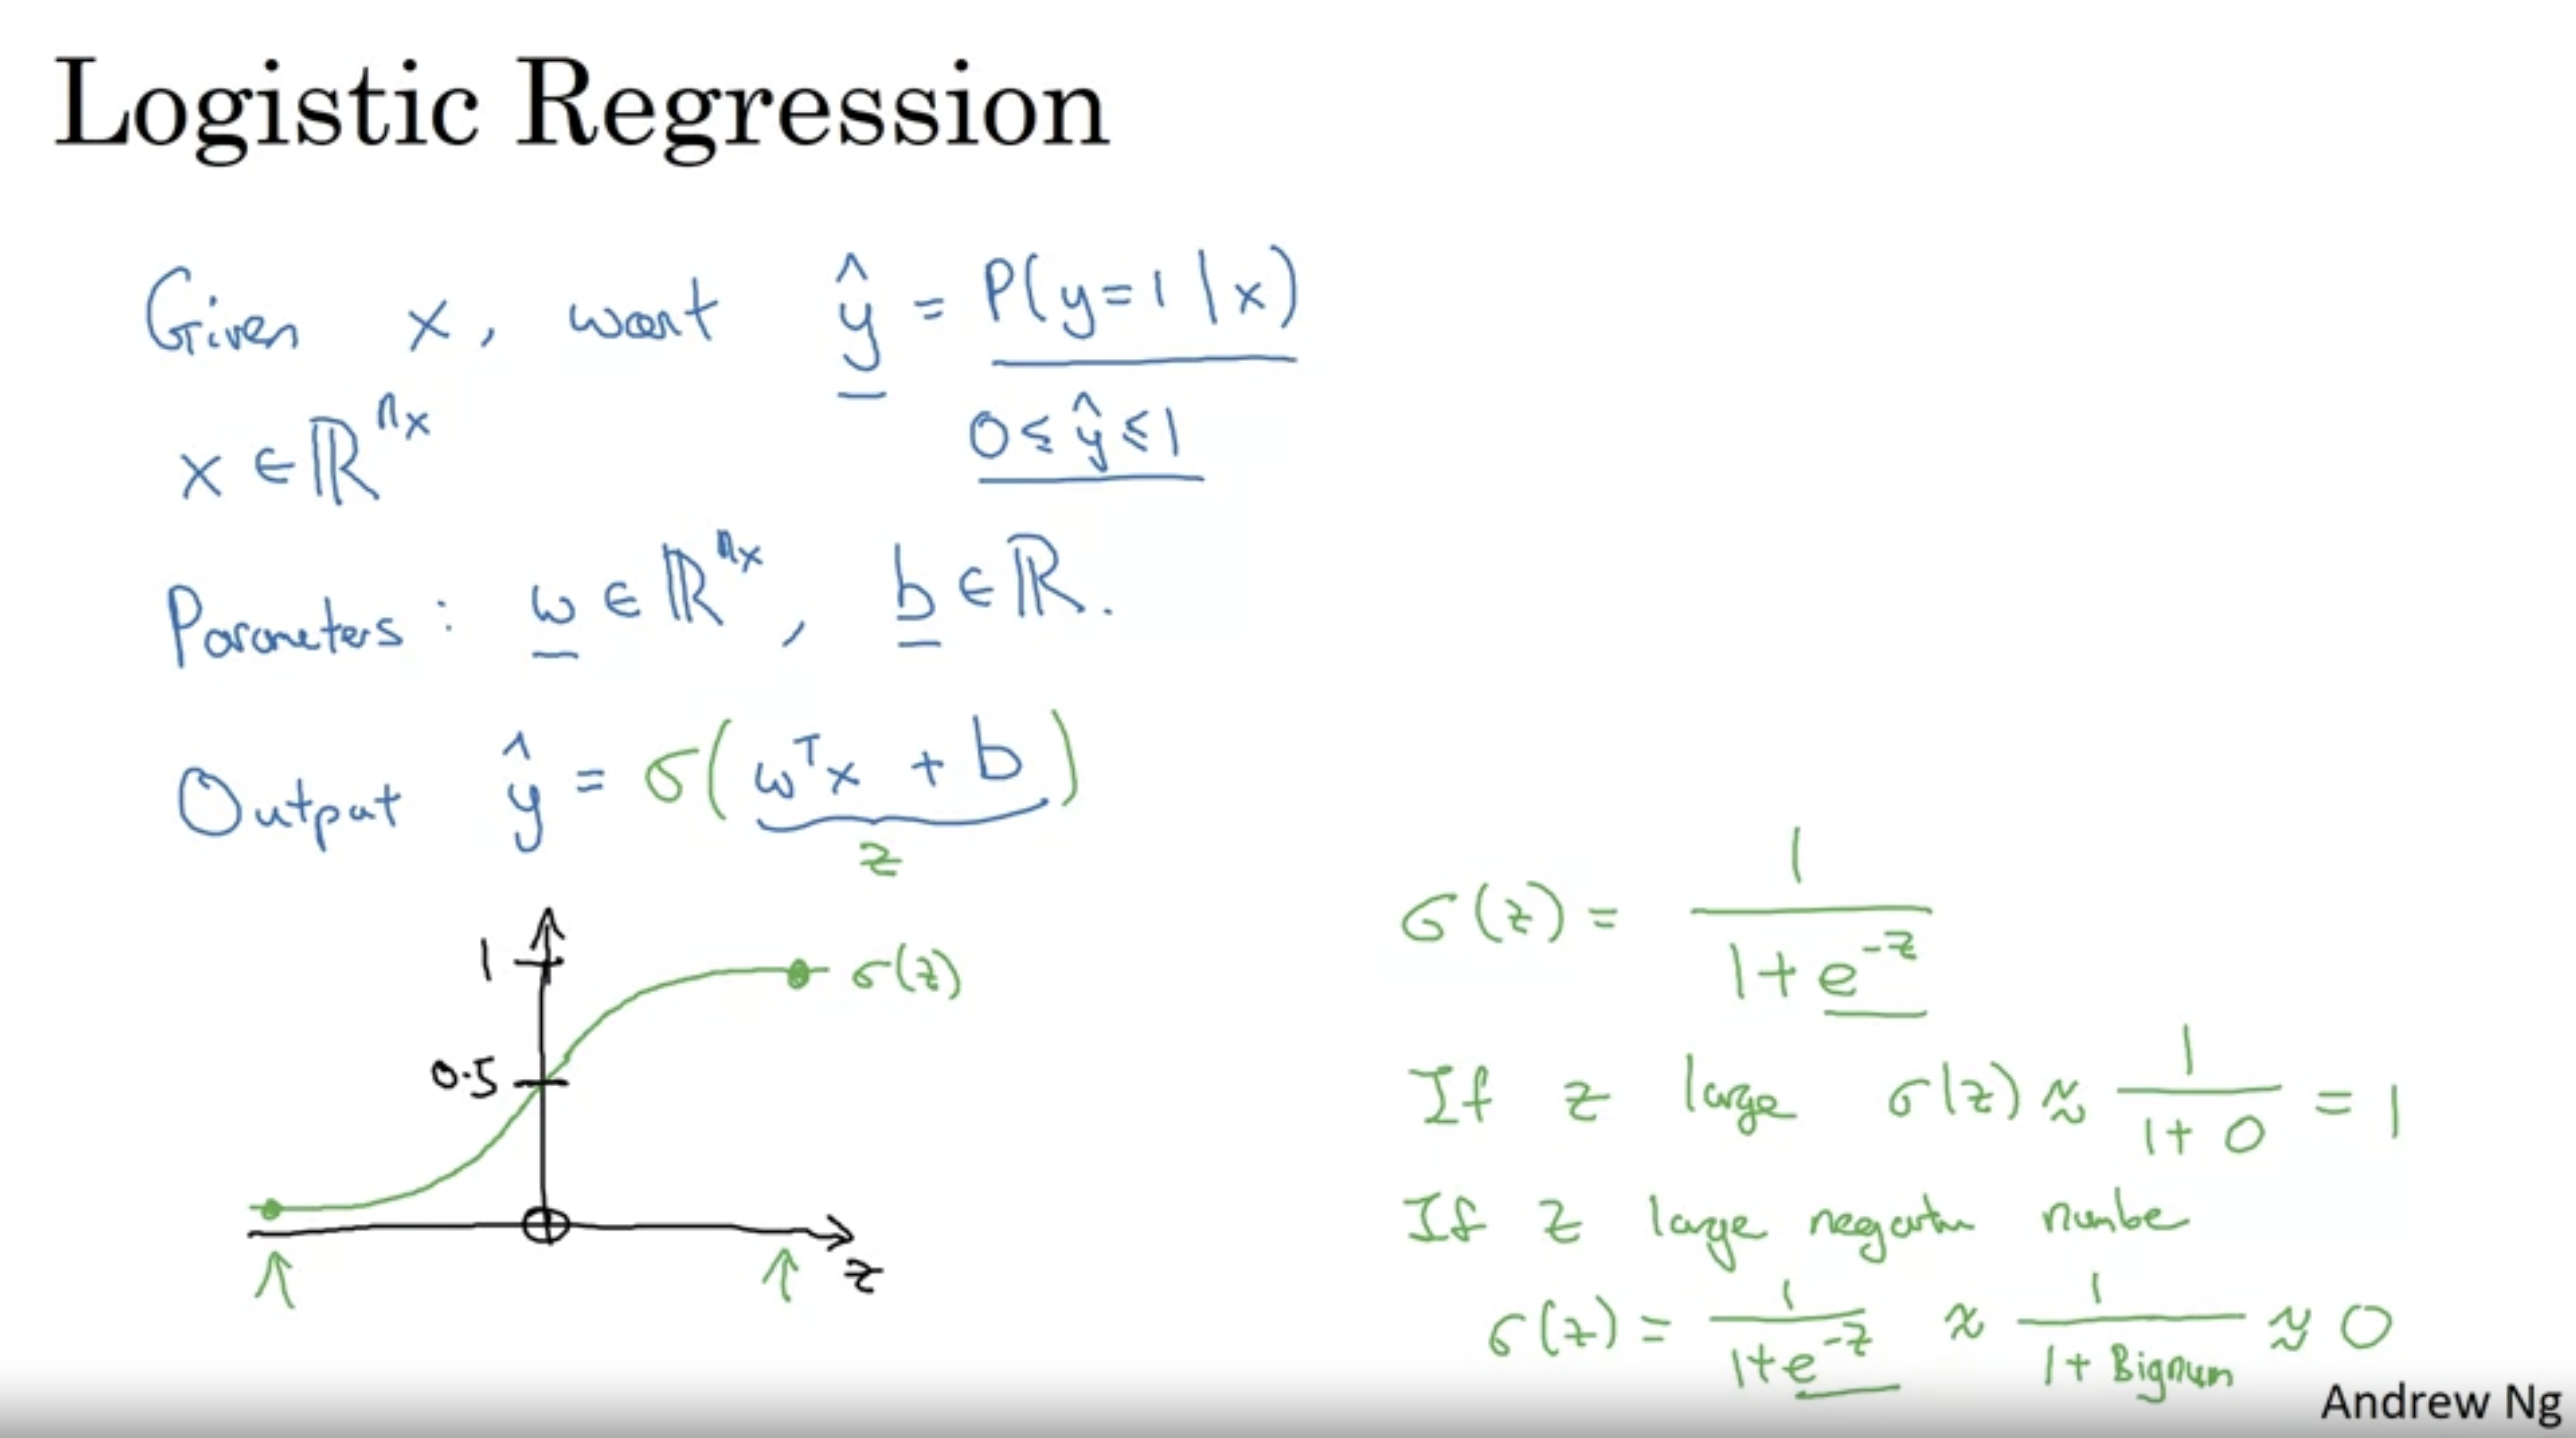 Logistic Regression
Given x, want ŷ = P(y=1|x)
x ∈ ℝⁿˣ
0 ≤ ŷ ≤ 1
Parameters: w ∈ ℝⁿˣ, b ∈ ℝ.
Output ŷ = σ(wᵀx + b)
z
1
σ(z)
0.5
0
z
σ(z) = 1 / (1 + e^(-z))
If z large σ(z) ≈ 1 / (1 + 0) = 1
If z large negative number
σ(z) = 1 / (1 + e^(-z)) ≈ 1 / (1 + Bignum) ≈ 0
Andrew Ng